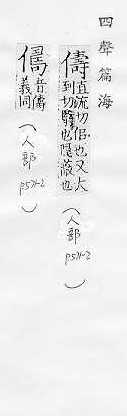 四聲篇海
儔 直流切侶也又大
到切翳也隱蔽也
(人部 p571-2)
音儔
義同
(人部 p571-2)